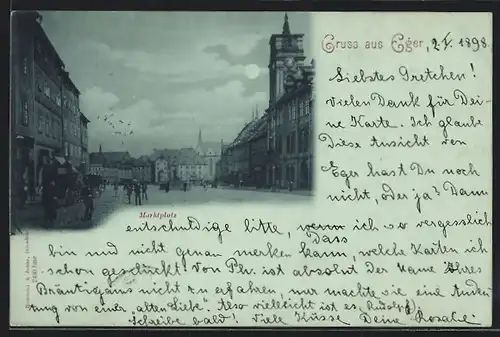 Gruss aus Eger, 2/V. 1898.
Liebstes Gretchen!
Vielen Dank für Dei-
ne Karte. Ich glaube
Diese Ansicht von
Eger hast Du noch
nicht, oder ja? Dann
Marktplatz
entschuldige bitte, wenn ich so vergesslich
bin und nicht genau merken kann, Dass welche Karten ich
schon geschickt! Von Ph. ist absolut der Name ihres
Bräutigams nicht zu erfahren, nur machte sie eine Andeu
tung von einer „alten Liebe“. Also vielleicht ist es Rudolf)
Schreibe bald! Viele Küsse Deine Rosalie